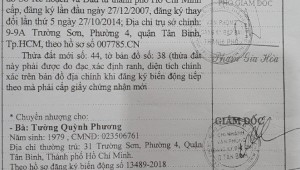 cấp, đăng ký lần đầu ngày 27/12/2007, đăng ký thay
đổi lần thứ 5 ngày 27/10/2014; Địa chỉ trụ sở chính:
9-9A Trường Sơn, Phường 4, quận Tân Bình,
Tp.HCM, theo hồ sơ số 007785.CN
Thửa đất mới số. 44, tờ bản đồ số: 38 (thửa đất
này phải được đo đạc, xác định ranh, diện tích chính
xác trên bản đồ địa chính khi đăng ký biến động tiếp
theo mà phải cấp giấy chứng nhận mới
PHÓ GIÁM ĐỐC
* Chuyển nhượng cho:
- Bà: Tường Quỳnh Phương
Năm sinh: 1979 , CMND: 023506761
Địa chỉ thường trú: 31 Trường Sơn, Phường 4, Quận
Tân Bình, Thành phố Hồ Chí Minh.
Theo hồ sơ đăng ký biến động số 13489-2018
GIÁM ĐỐC